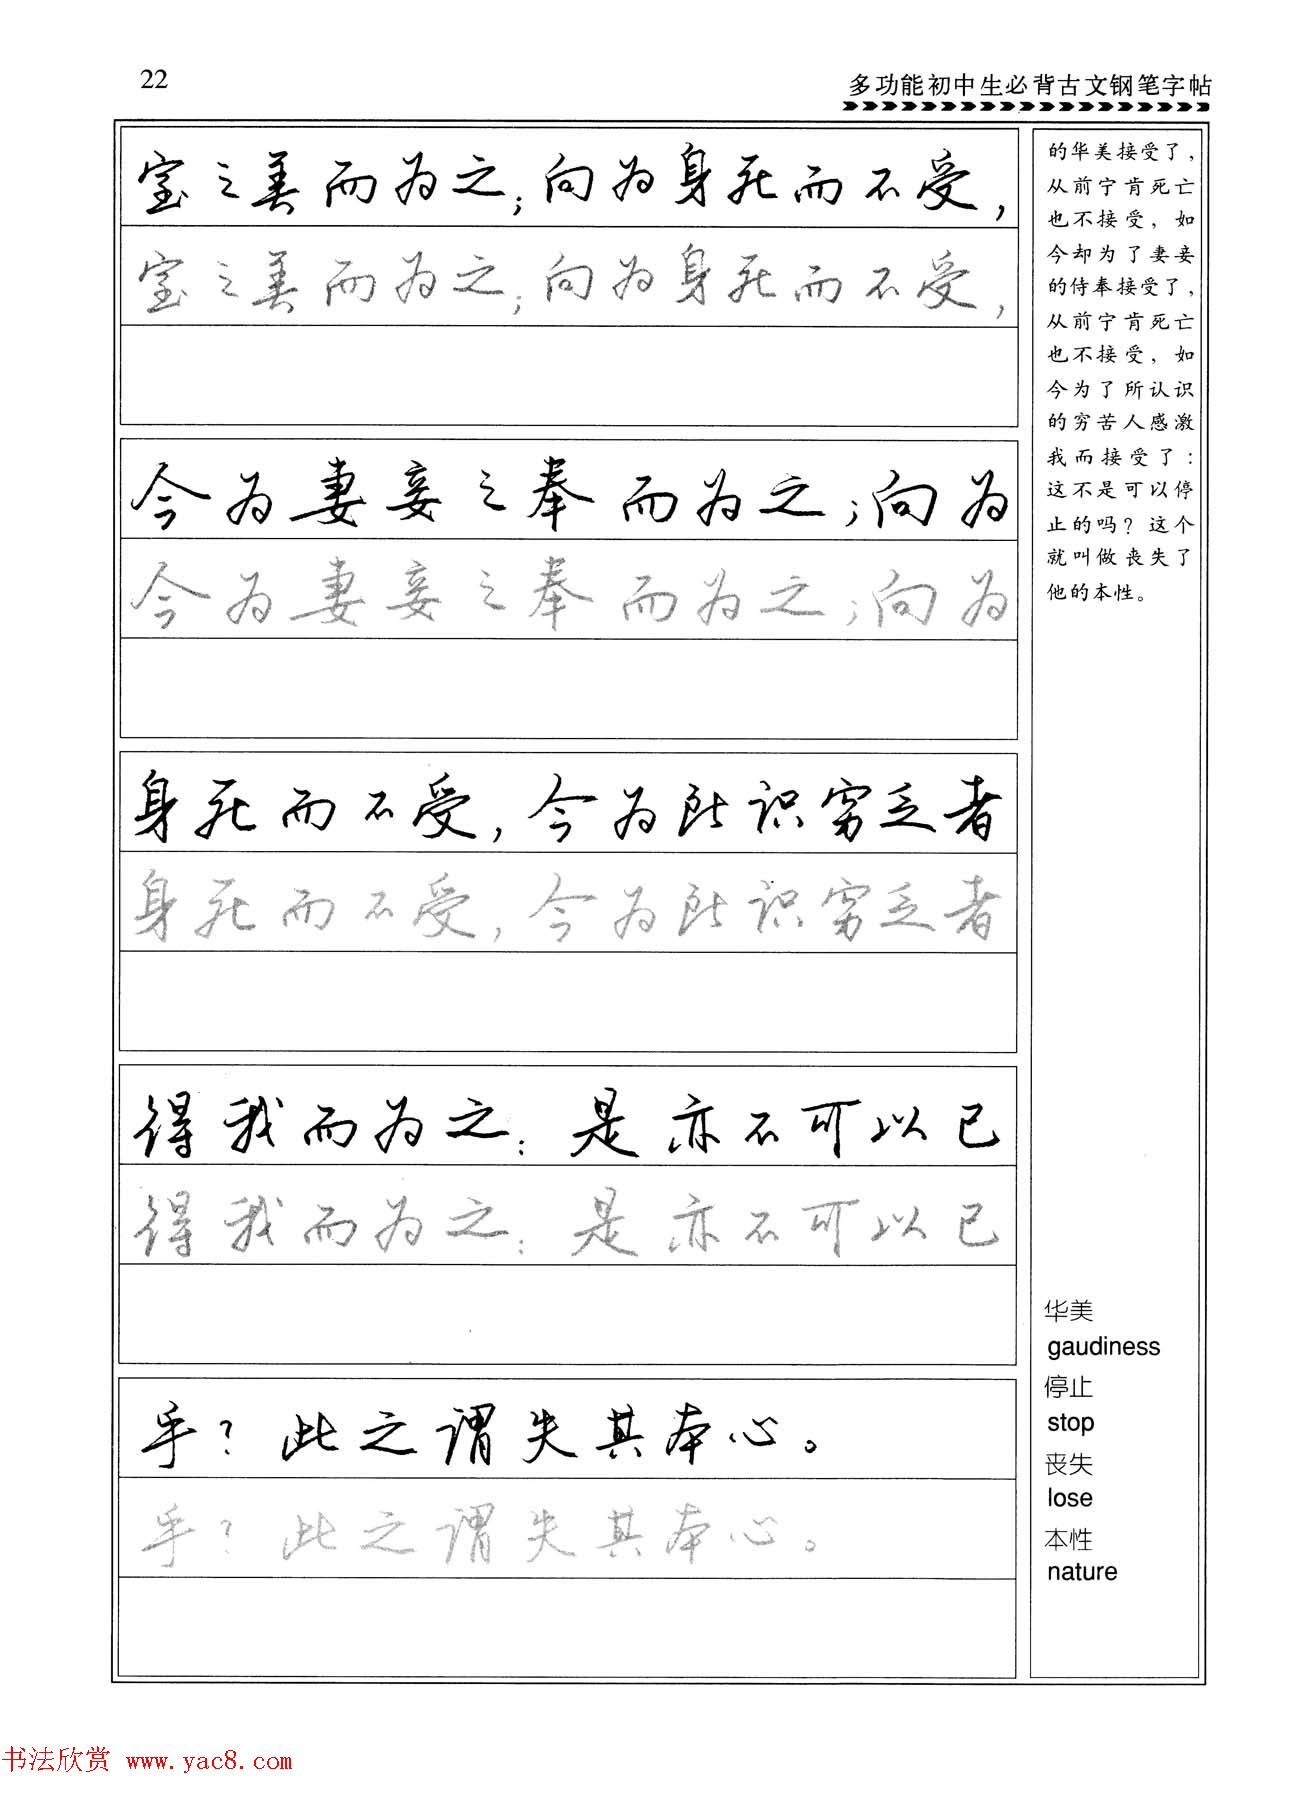 22
多功能初中生必背古文钢笔字帖
室之美而为之；向为身死而不受，
室之美而为之；向为身死而不受，
今为妻妾之奉而为之；向为
今为妻妾之奉而为之；向为
身死而不受，今为所识穷乏者
身死而不受，今为所识穷乏者
得我而为之：是亦不可以已
得我而为之：是亦不可以已
乎？此之谓失其本心。
乎？此之谓失其本心。
的华美接受了，
从前宁肯死亡
也不接受，如
今却为了妻妾
的侍奉接受了，
从前宁肯死亡
也不接受，如
今为了所认识
的穷苦人感激
我而接受了：
这不是可以停
止的吗？这个
就叫做丧失了
他的本性。
华美
gaudiness
停止
stop
丧失
lose
本性
nature
书法欣赏 www.yac8.com